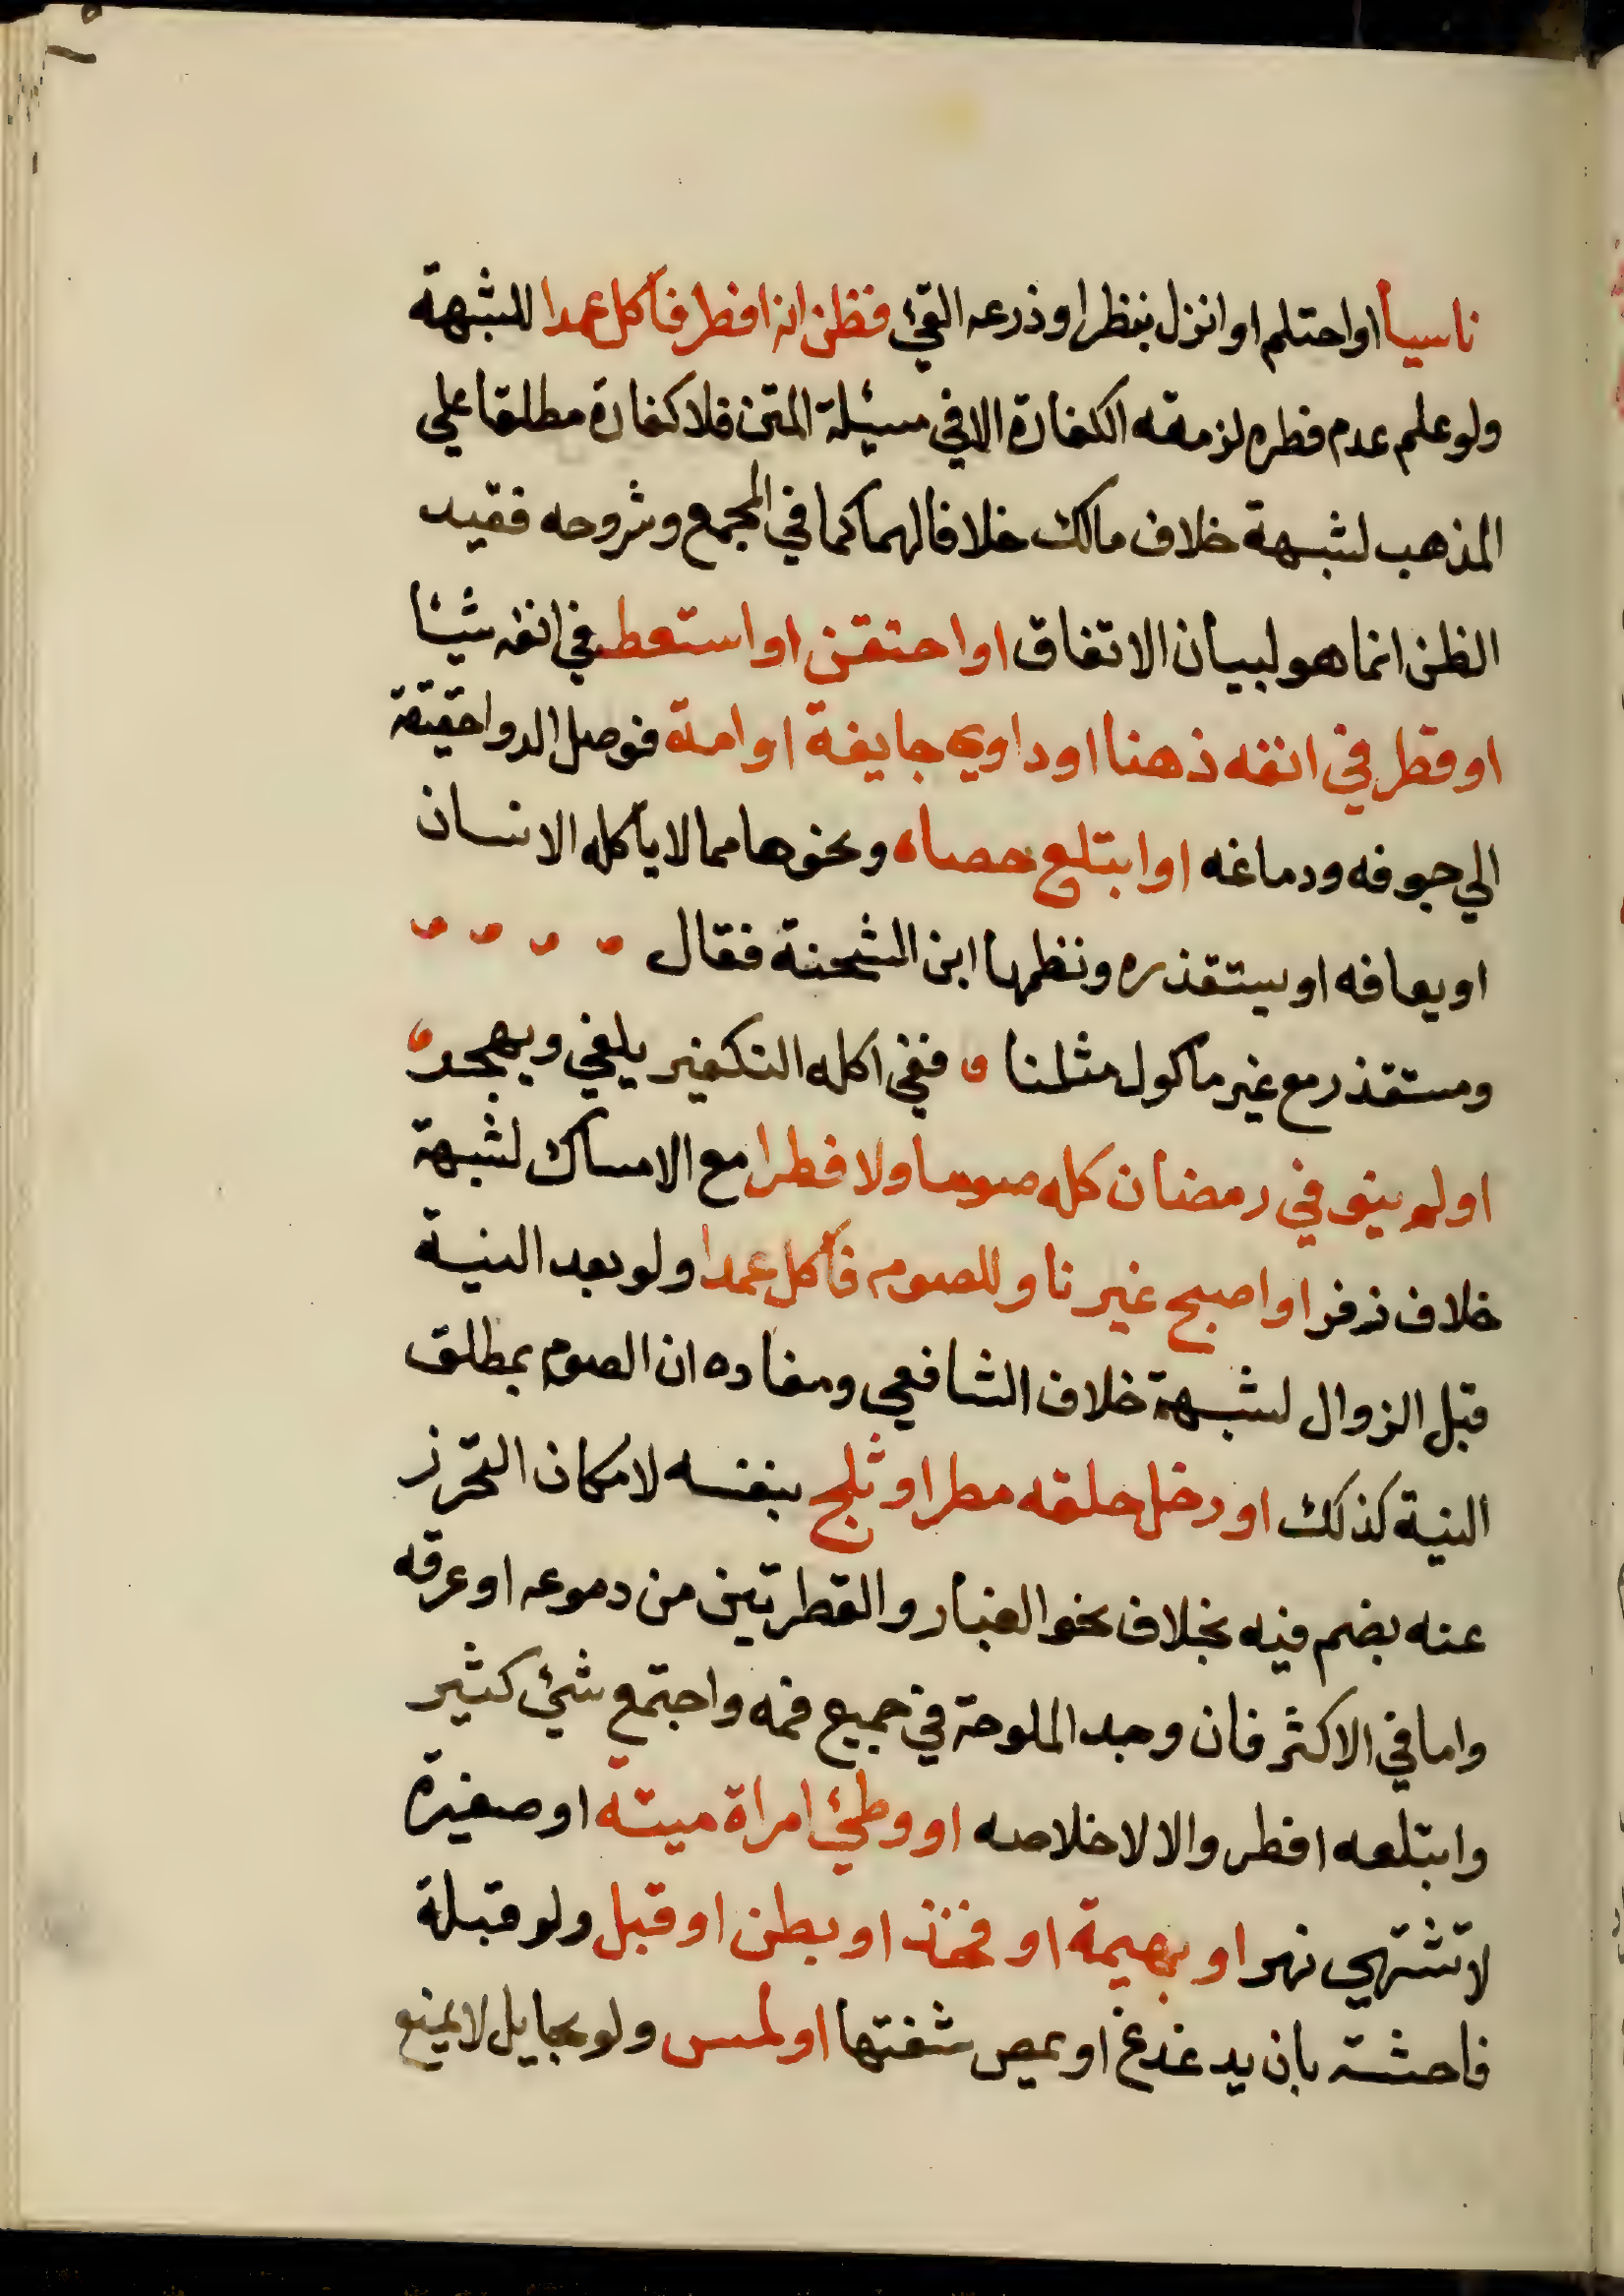 ناسيا او احتلم او انزل بنظر او ذرعه القئ فظن انه افطر فأكل عمدا للشبهة
ولو علم عدم فطره لزمته الكفارة الا في مسئلة المتن فلا كفارة مطلقا علي
المذهب لشبهة خلاف مالك خلافا لهما كما في المجمع وشروحه فقيد
الظن انما هو لبيان الاتفاق او احتقن او استعط في انفه شيئا
او قطر في انفه ذهنا او داوي جايفة او امة فوصل الدوا حقيقة
الي جوفه ودماغه او ابتلع حصاه ونحوها مما لا يأكله الانسان
او يعافه او يستقذره ونظمها ابن الشحنة فقال
ومستقذر مع غير مأكول مثلنا ففي اكله التكفير يلغي ويهجر
او لم ينو في رمضان كله صوما ولا فطرا مع الامساك لشبهة
خلاف زفر او اصبح غير ناو للصوم فأكل عمدا ولو بعد النية
قبل الزوال لشبهة خلاف الشافعي ومفاده ان الصوم بمطلق
النية كذلك او دخل حلقه مطر او ثلج بنفسه لامكان التحرز
عنه بضم فيه بخلاف نحو الغبار والقطرتين من دموعه او عرقه
واما في الاكثر فان وجد الملوحة في جميع فمه واجتمع شئ كثير
وابتلعه افطر والا لا خلاصه او وطئ امراة ميتة او صغيرة
لا تشتهي نهر او بهيمة او فخذ او بطن او قبل ولو قبلة
فاحشة بان يدغدغ او يمص شفتها او لمس ولو بحايل لا يمنع